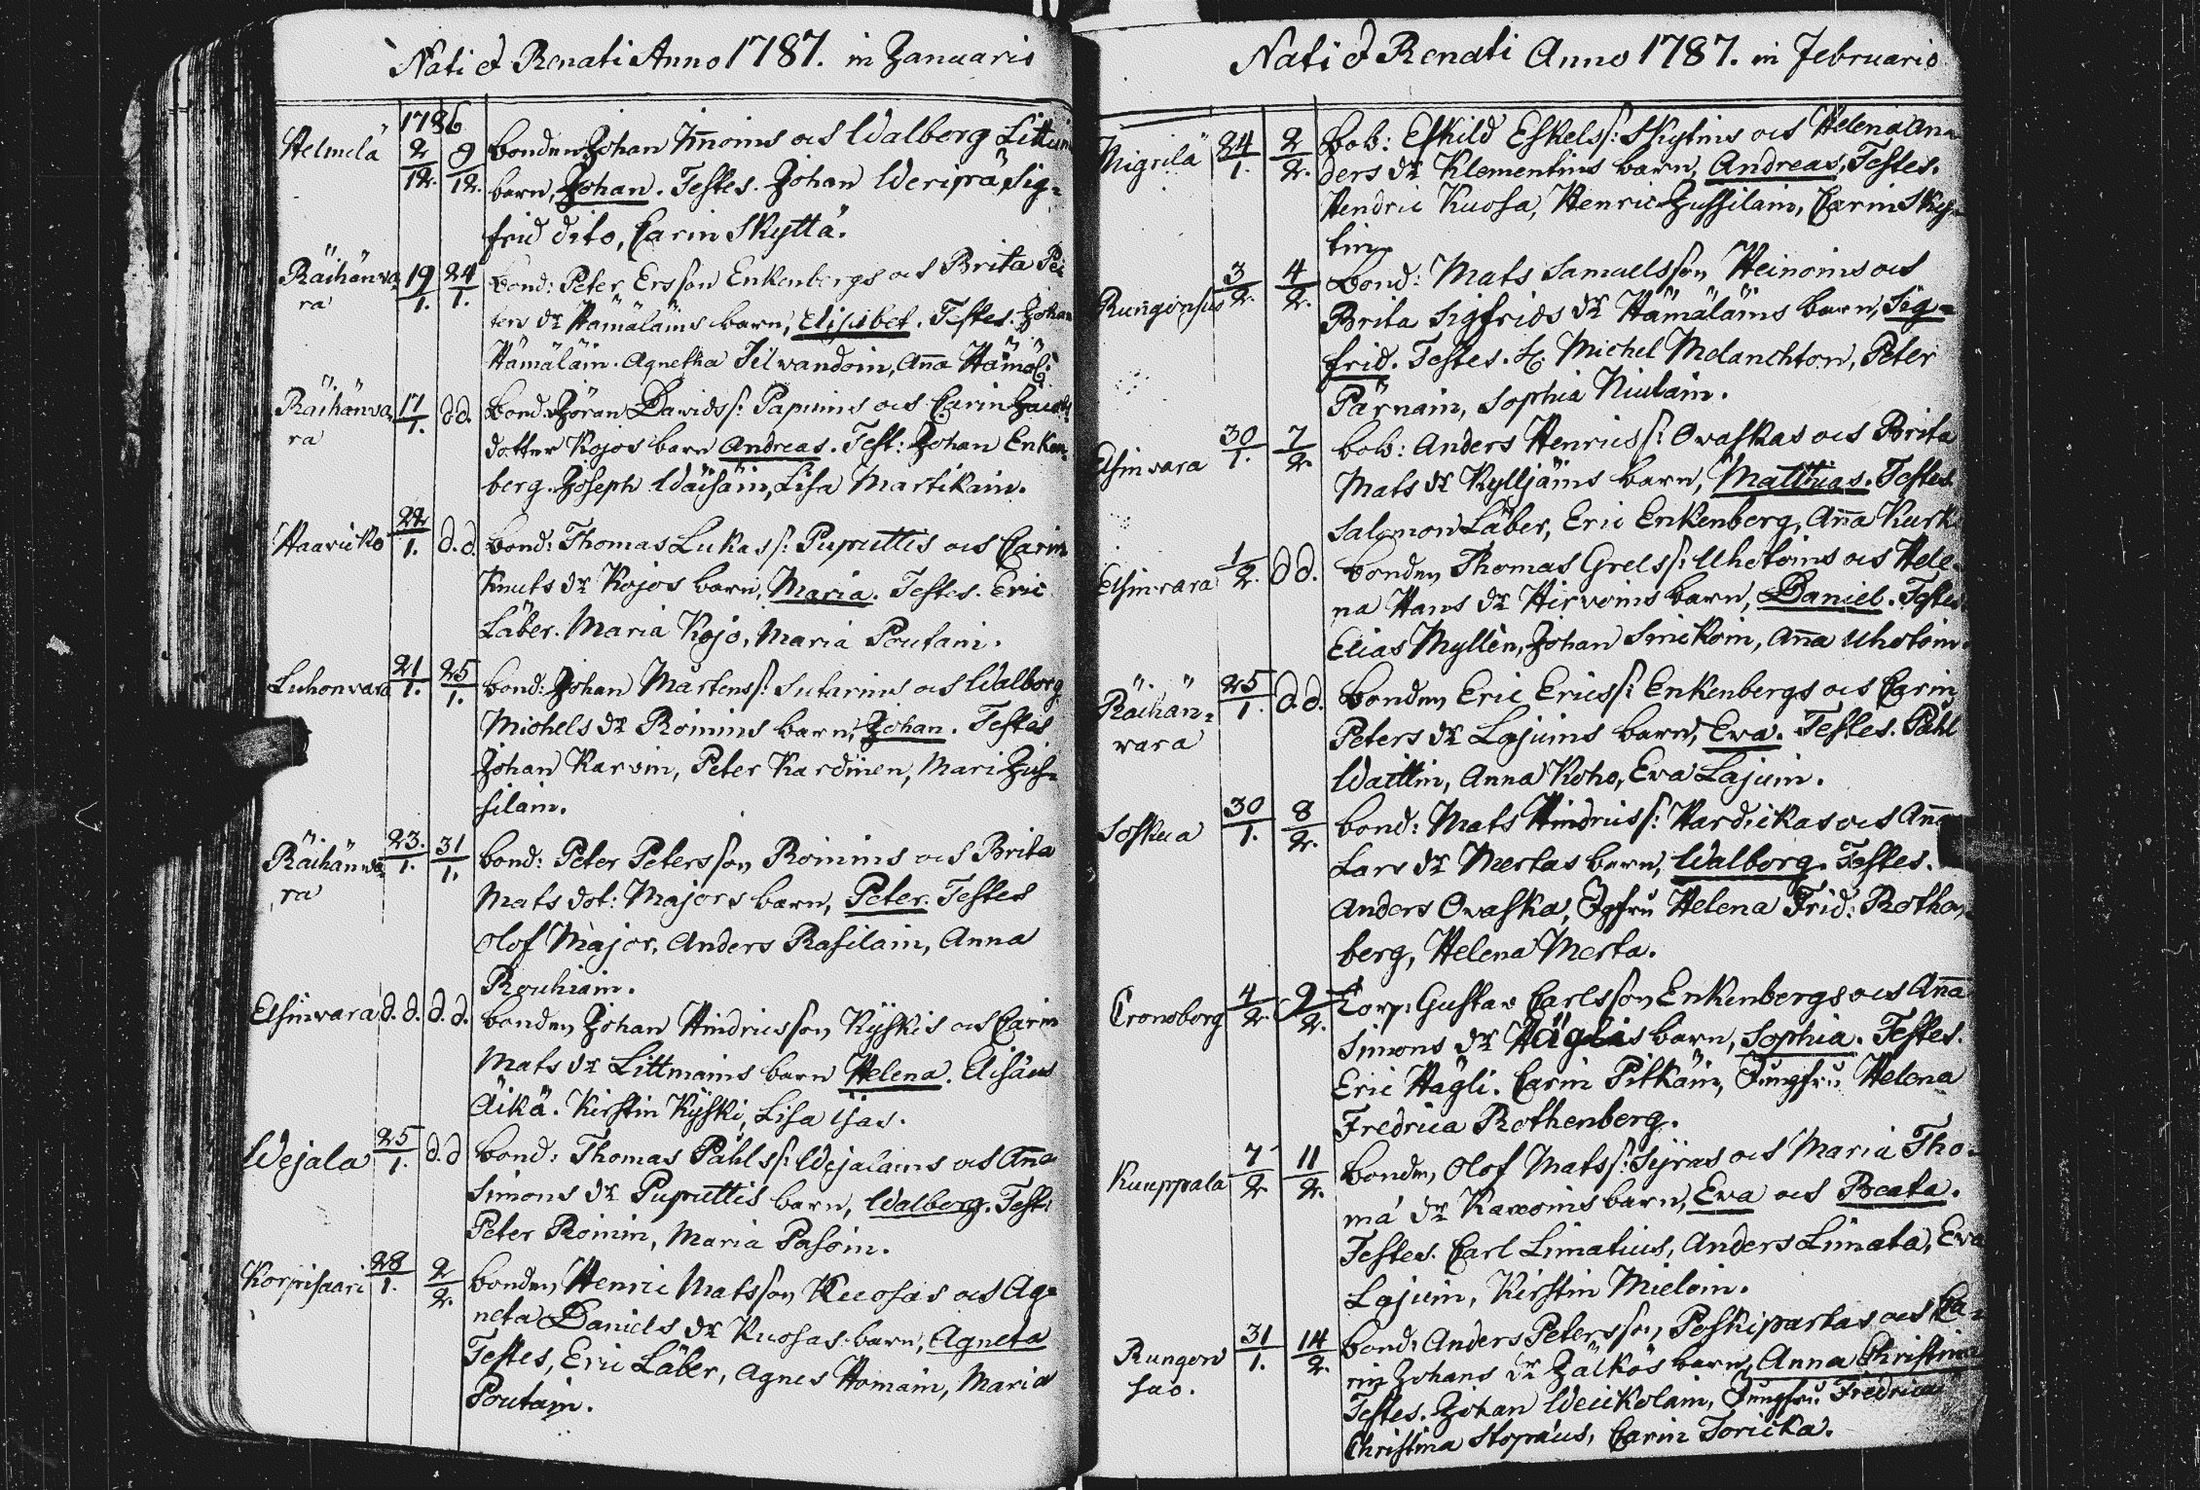 Nati & Renati Anno 1787. in Januario
1786
Helmelä 2/12. 9/12. bonden Johan Innoins och Walborg
barn, Johan. Testes. Johan Weripä, Sig=
frid dito, Carin Skyttä.
Räihänwa= 19/1. 24/1. bond: Peter Ersson Enkenbergs och Brita Pe
ra ters dr Hämäläins barn, Elisabet. Testes. Johan
Hämäläin. Agnetha Ilwandoin, Anna Hämäl:
Räihänwa= 17/1. dd. bond: Jöran Davidss: Papuins och Carin Jacobs
ra dotter Kojos barn Andreas. Test: Johan Enken=
berg. Joseph Wäisäin, Lisa Martikain.
Haavicko 22/1. d.d. bond: Thomas Lukass: Puputtis och Carin
Knuts dr Kojos barn, Maria. Testes. Eric
Läber. Maria Kojo, Maria Poutain.
Luhonvara 21/1. 25/1. bond: Johan Mårtenss: Sutarins och Walborg
Michels dr Roinins barn, Johan. Testes
Johan Karvin, Peter Kardinen, Mari Jus=
silain.
Räihänwa= 23./1. 31/1. bond: Peter Petersson Roinins och Brita
ra Mats dot: Majors barn, Peter. Testes
Olof Major, Anders Rasilain, Anna
Rouhiain.
Elsinvara d.d. d.d. bonden Johan Hindricsson Kyskis och Carin
Mats dr Littmains barn Helena. Elisäus
Äikä. Kirstin Kyski, Lisa Isas.
Wejala 25/1. d.d bond: Thomas Påhls s: Wejalains och Anna
Simons dr Puputtis barn, Walborg. Test:
Peter Roinin, Maria Pasoin.
Korpisaari 28/1. 2/2. bonden Henric Matsson Kuosas och Ag=
neta Daniels dr Kuosas barn, Agneta
Testes, Eric Läber, Agnes Homain, Maria
Poutain.
Nati & Renati Anno 1787. in Februario
Nigrilä 24/1. 2/2. bob: Eskild Eskelss: Skytins och Helena An=
ders dr Klementins barn, Andreas, Testes.
Hendric Kuosa, Henric Jussilain, Carin Sky=
tin.
Rungonsuo 3/2. 4/2. bond: Mats Samuelsson Heinoins och
Brita Sigfrids dr Hämäläins barn, Sig=
frid. Testes. H: Michel Melanchton, Peter
Pärnäin, Sophia Niulain.
Elsinvara 30/1. 7/2. bob: Anders Henricss: Ovaskas och Brita
Mats dr Kylljäins barn, Matthias. Testes
Salomon Läber, Eric Enkenberg, Anna Kurk
Elsinvara 1/2. dd. bonden Thomas Grels s: Uhotoins och Hele=
na Hans dr Hirvoins barn, Daniel. Testes
Elias Myllen, Johan Sinckoin, Anna Uhotoin.
Räihän= 25/1. d.d. bonden Eric Ericss: Enkenbergs och Carin
vara Peters dr Lajuins barn, Eva. Testes. Påhl
Waittin, Anna Koho, Eva Lajuin.
Soskua 30/1. 8/2. bond: Mats Hindricss: Hardickas och Anna
Lars dr Mertas barn, Walborg. Testes.
Anders Ovaska, Jgfru Helena Frid: Rothen=
berg, Helena Merta.
Cronoborg 4/2. 9/2. Torp: Gustav Carlsson Enkenbergs och Anna
Simons dr Häglis barn, Sophia. Testes.
Eric Hägli. Carin Pitkäin, Jungfru Helena
Fredrica Rothenberg.
Kuuppala 7/2 11/2. bonden, Olof Matss: Syräs och Maria Tho=
mä dr Karvoins barn, Eva och Beata.
Testes. Carl Limatius, Anders Limata, Eva
Lajuin, Kirstin Mieloin.
Rungon 31/1. 14/2. bond: Anders Petersson, Poskipartas och Ca=
suo. rin Johans dr Jälkös barn, Anna Christina
Testes. Johan Weickolain, Jungfru Fredrica
Christina Stopäus, Carin Toricka.